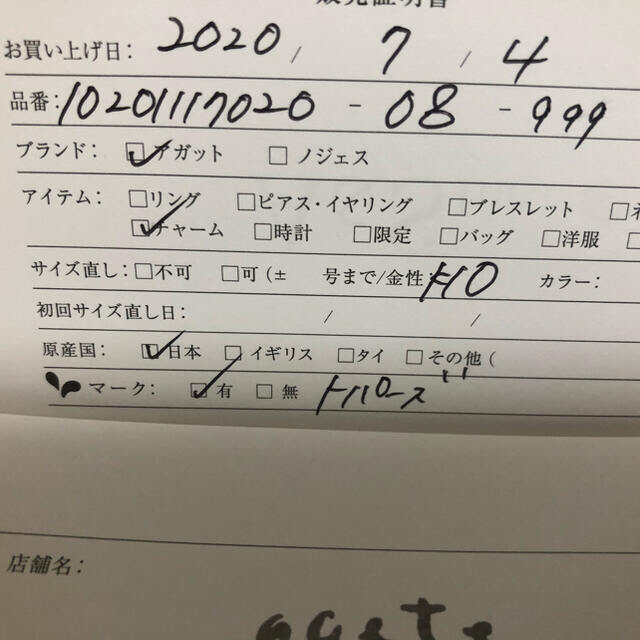 販売証明書
お買い上げ日: 2020 / 7 / 4
品番: 10201117020 - 08 - 999
ブランド: ☑アガット □ノジェス
アイテム: □リング □ピアス・イヤリング □ブレスレット □ネ
☑チャーム □時計 □限定 □バッグ □洋服 □
サイズ直し: □不可 □可 (± 号まで/金性: K10 カラー:
初回サイズ直し日: / /
原産国: ☑日本 □イギリス □タイ □その他 (
マーク: ☑有 □無 トパーズ
店舗名:
agete